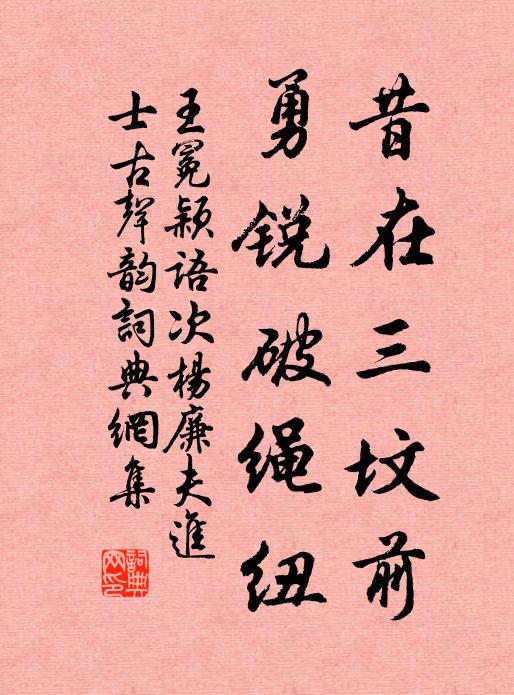 昔在三坟前
勇锐破绳纽
王冕颖语次杨廉夫進
士古聲韵詞典網集
詞典网印